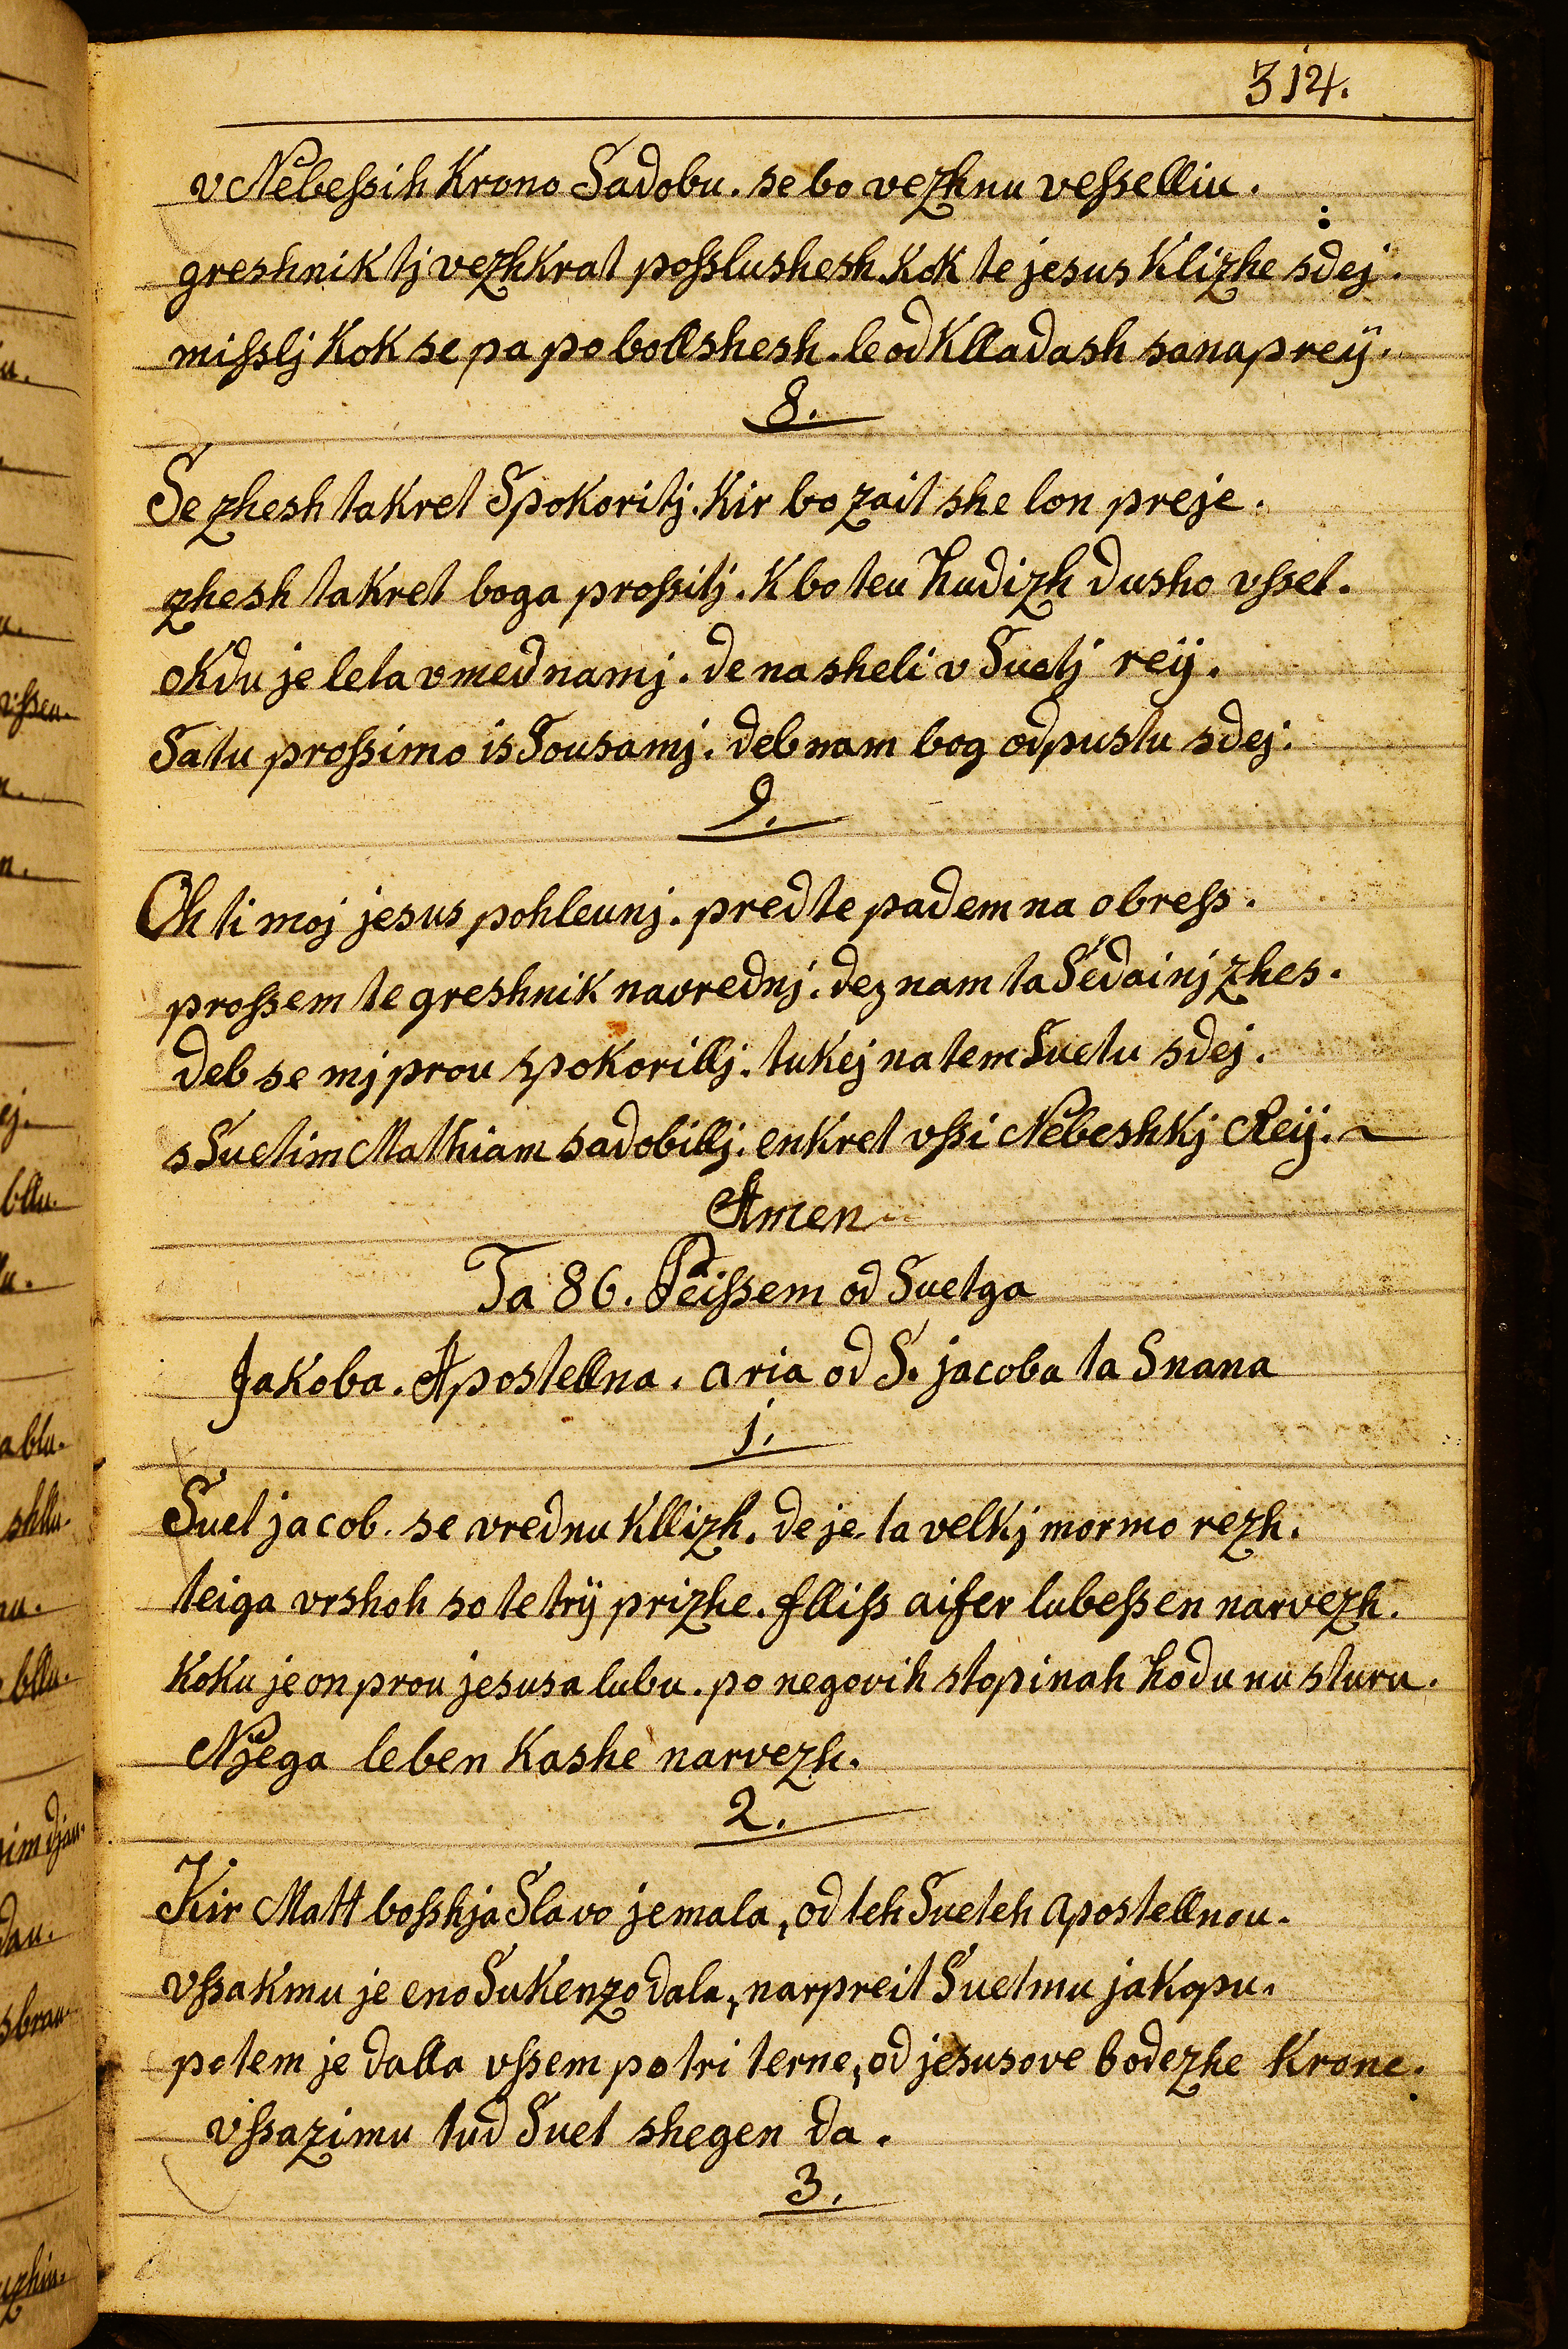 314.
v Nebeſsih Krono Sadobu. se bo vezhnu veſselliu.
greshnik tj vezhkrat poſslushesh. Kok te jesus Klizhe sdej.
miſslj Kok se pa po bollshesh. le od Klladash sanaprej.
8.
Se zhesh takret Spokoritj. Kir bo zait she lon preje.
zhesh takret boga proſsitj. K bo teu hudizh dusho vſset.
okdu je leta vmed namj. de na sheli v Suetj reij.
Satu proſsimo is Sousamj. deb nam bog odpustu sdej.
9.
Oh ti moj jesus pohleunj. pred te padem na obreſs.
proſsem te greshnik navrednj. dez nam ta Sedainj zhes.
deb se mj prou spokorillj. tukej na tem Suetu sdej.
s Suetim Mathiam sadobillj. enkret vſsi Nebeshkj Reij.
Amen
Ta 86. Peiſsem od Suetga
Jakoba. Apostellna. aria od S. jacoba ta Snana
1.
Suet jacob. se vrednu Kllizh. de je ta velkj mormo rezh.
teiga vrshoh so te trij prizhe. flliſs aifer lubeſsen narvezh.
Koku je on prou jesusa lubu. po negovih stopinah hodu nu sturu.
Njega leben Kashe narvezh.
2.
Kir Matt boſshja Slavo jemala, od teh Sueteh apostellnou.
vſsakmu je eno Sukenzo dala, narpreit Suetmu jakopu.
potem je dalla vſsem po tri terne, od jesusove bodezhe Krone.
vſsazimu tud Suet shegen da.
3.